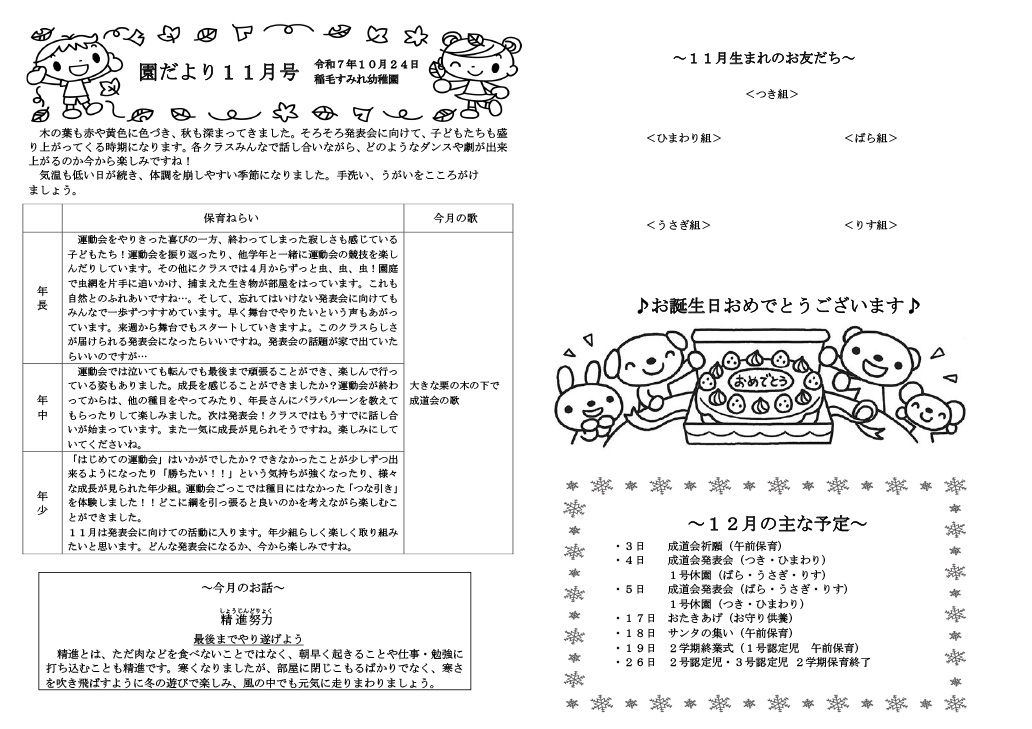 園だより１１月号
令和７年１０月２４日
稲毛すみれ幼稚園
木の葉も赤や黄色に色づき、秋も深まってきました。そろそろ発表会に向けて、子どもたちも盛
り上がってくる時期になります。各クラスみんなで話し合いながら、どのようなダンスや劇が出来
上がるのか今から楽しみですね！
気温も低い日が続き、体調を崩しやすい季節になりました。手洗い、うがいをこころがけ
ましょう。
保育ねらい
今月の歌
年長
運動会をやりきった喜びの一方、終わってしまった寂しさも感じている
子どもたち！運動会を振り返ったり、他学年と一緒に運動会の競技を楽し
んだりしています。その他にクラスでは４月からずっと虫、虫、虫！園庭
で虫網を片手に追いかけ、捕まえた生き物が部屋をはっています。これも
自然とのふれあいですね…。そして、忘れてはいけない発表会に向けても
みんなで一歩ずつすすめています。早く舞台でやりたいという声もあがっ
ています。来週から舞台でもスタートしていきますよ。このクラスらしさ
が届けられる発表会になったらいいですね。発表会の話題が家で出ていた
らいいのですが…
年中
運動会では泣いても転んでも最後まで頑張ることができ、楽しんで行っ
ている姿もありました。成長を感じることができましたか？運動会が終わ
ってからは、他の種目をやってみたり、年長さんにパラバルーンを教えて
もらったりして楽しみました。次は発表会！クラスではもうすでに話し合
いが始まっています。また一気に成長が見られそうですね。楽しみにして
いてくださいね。
大きな栗の木の下で
成道会の歌
年少
「はじめての運動会」はいかがでしたか？できなかったことが少しずつ出
来るようになったり「勝ちたい！！」という気持ちが強くなったり、様々
な成長が見られた年少組。運動会ごっこでは種目にはなかった「つな引き」
を体験しました！！どこに綱を引っ張ると良いのかを考えながら楽しむこ
とができました。
１１月は発表会に向けての活動に入ります。年少組らしく楽しく取り組み
たいと思います。どんな発表会になるか、今から楽しみですね。
～今月のお話～
しょうじんどりょく
精進努力
最後までやり遂げよう
精進とは、ただ肉などを食べないことではなく、朝早く起きることや仕事・勉強に
打ち込むことも精進です。寒くなりましたが、部屋に閉じこもるばかりでなく、寒さ
を吹き飛ばすように冬の遊びで楽しみ、風の中でも元気に走りまわりましょう。
～１１月生まれのお友だち～
＜つき組＞
＜ひまわり組＞
＜ばら組＞
＜うさぎ組＞
＜りす組＞
♪お誕生日おめでとうございます♪
おめでとう
～１２月の主な予定～
・３日 成道会祈願（午前保育）
・４日 成道会発表会（つき・ひまわり）
１号休園（ばら・うさぎ・りす）
・５日 成道会発表会（ばら・うさぎ・りす）
１号休園（つき・ひまわり）
・１７日 おたきあげ（お守り供養）
・１８日 サンタの集い（午前保育）
・１９日 ２学期終業式（１号認定児 午前保育）
・２６日 ２号認定児・３号認定児 ２学期保育終了